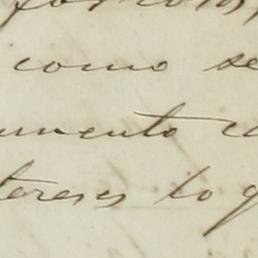 como se
umento co
tereses lo q